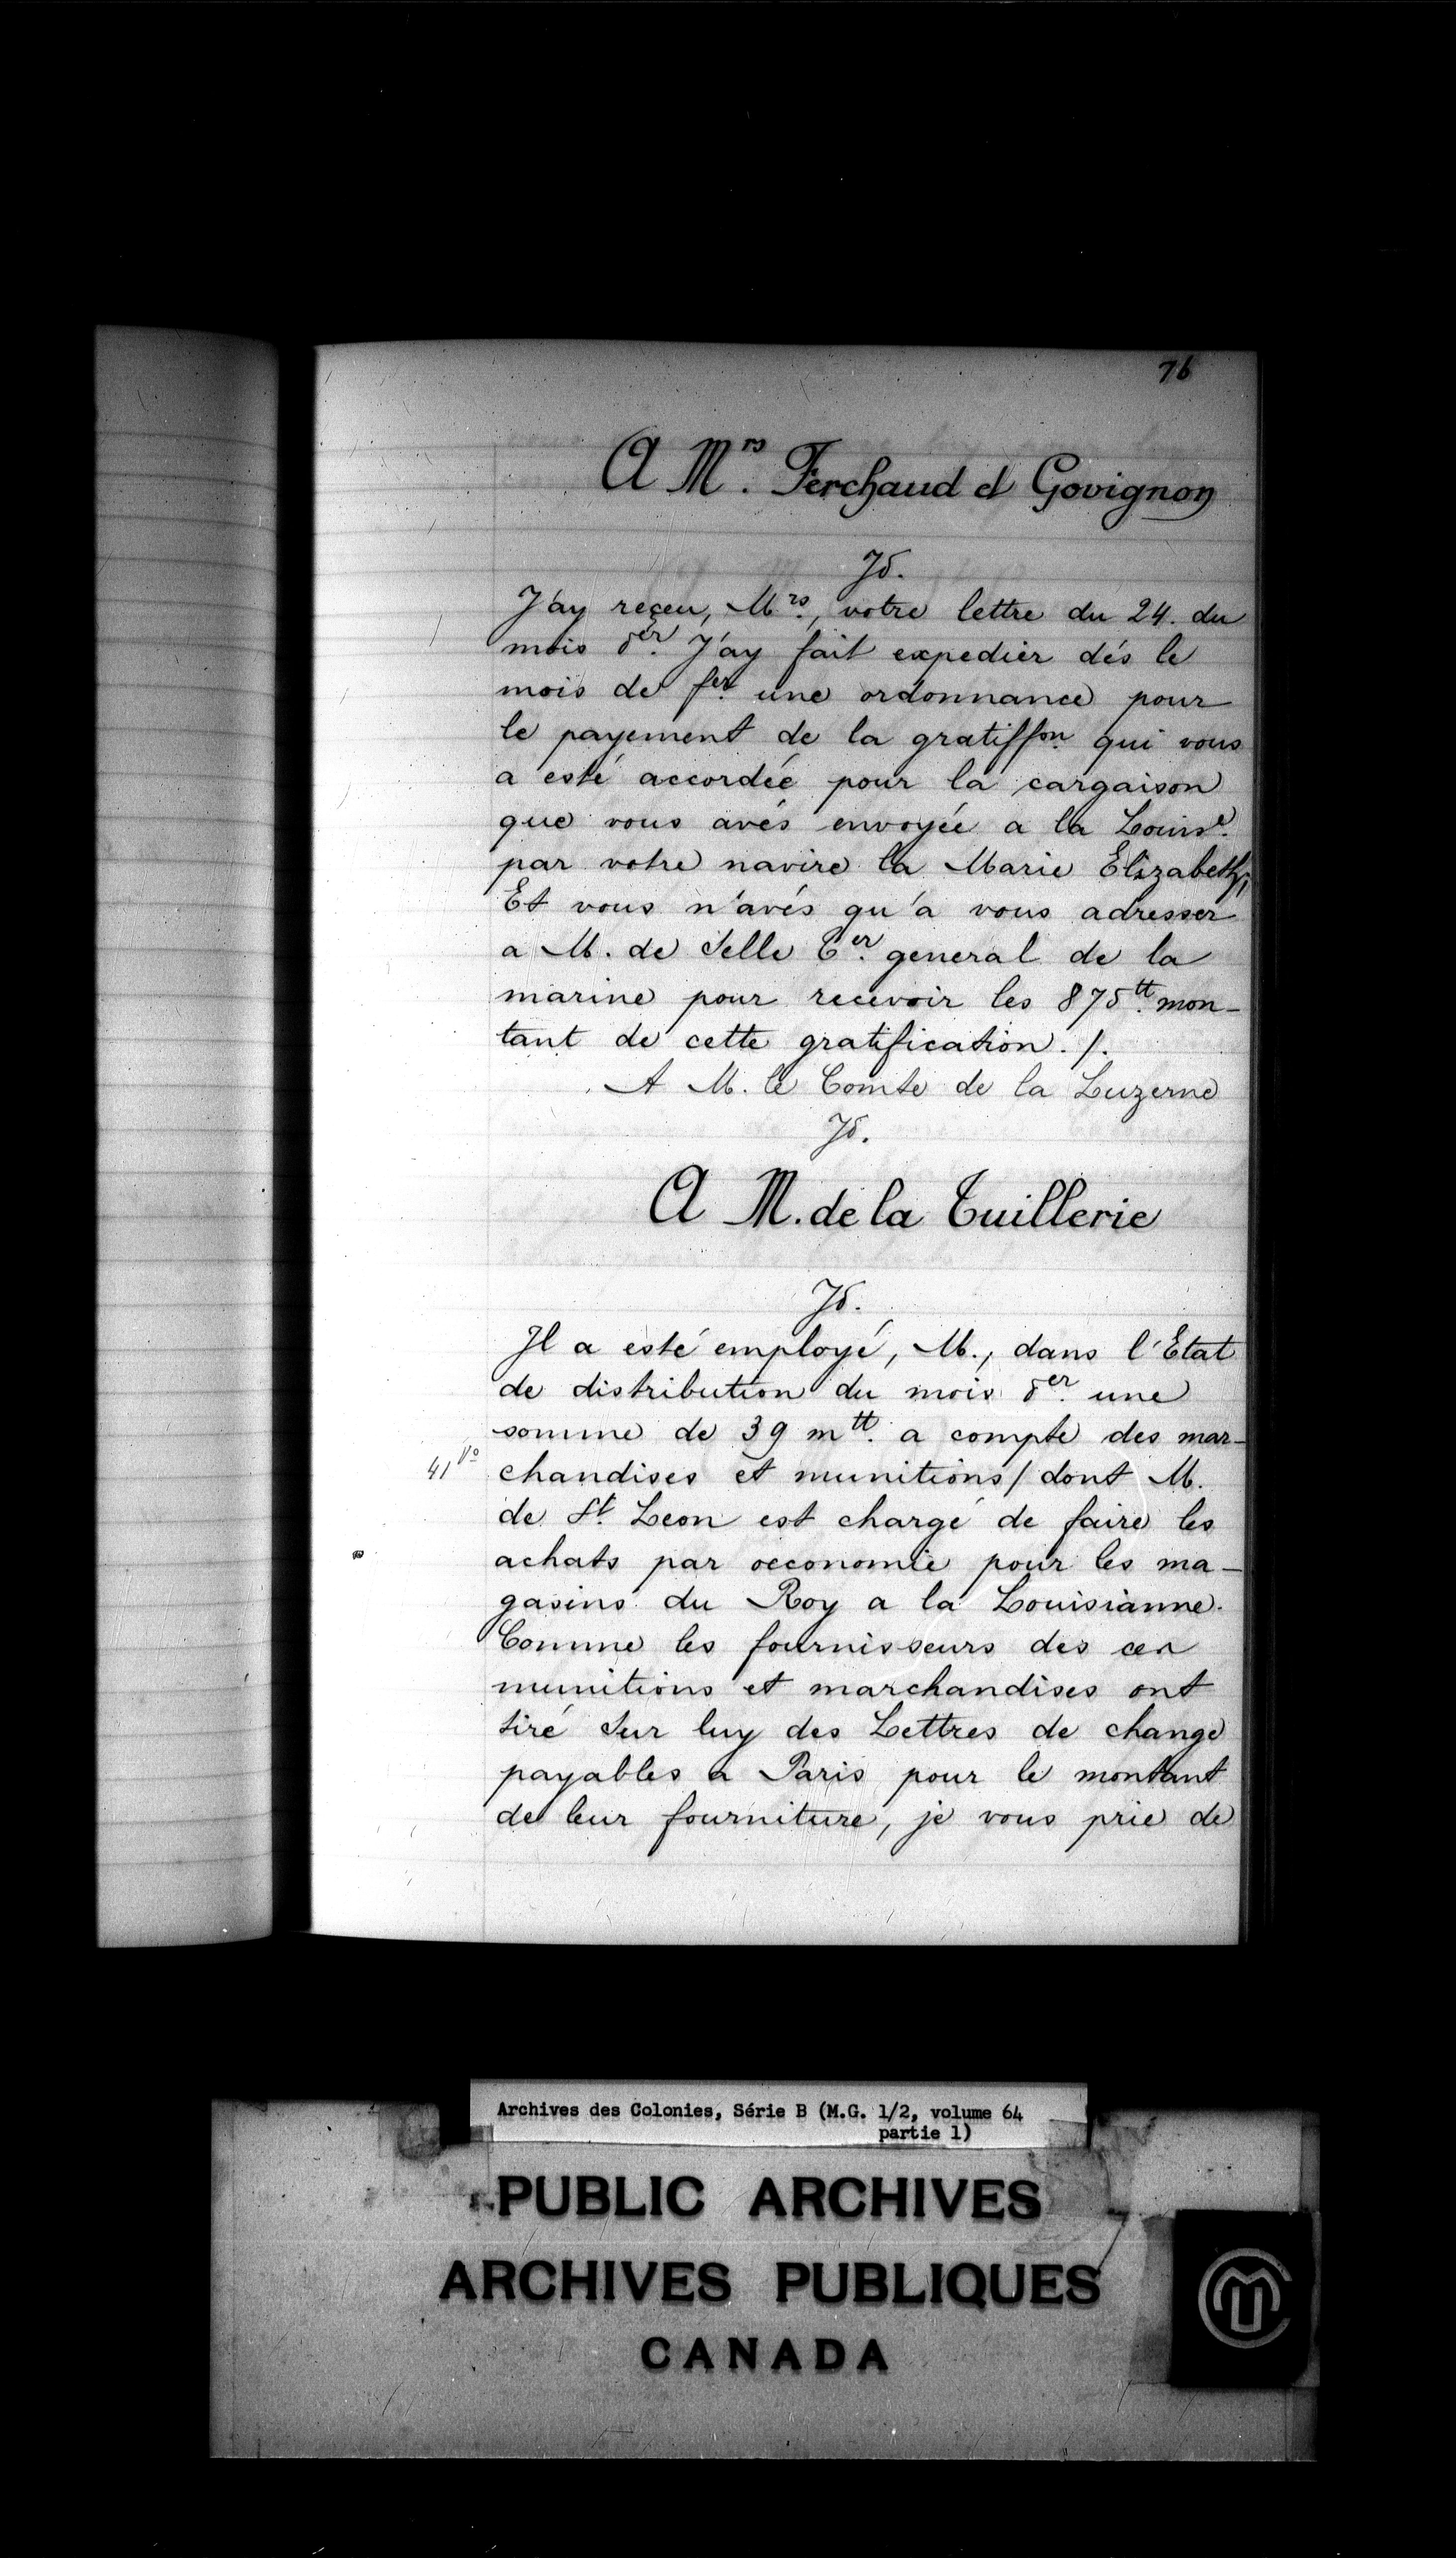 76
A Mrs. Ferchaud et Govignon
Jd.
J'ay reçeu, Mrs., votre lettre du 24. du
mois der. J'ay fait expedier dés le
mois de fer. une ordonnance pour
le payement de la gratiffon. qui vous
a esté accordée pour la cargaison
que vous avés envoyée a la Louise.
par votre navire la Marie Elizabeth;
Et vous n'avés qu'a vous adresser
a M. de Selle Ter. general de la
marine pour recevoir les 875tt. mon-
tant de cette gratification. /.
A M. le Comte de la Luzerne
Jd.
A M. de la Tuillerie
Jd.
Jl a esté employé, M., dans l'Etat
de distribution du mois der. une
somme de 39 mtt. a compte des mar-
41 Vo chandises et munitions / dont M.
de St. Leon est chargé de faire les
achats par oeconomie pour les ma-
gasins du Roy a la Louisianne.
Comme les fournisseurs des ces
munitions et marchandises ont
tiré sur luy des Lettres de change
payables a Paris pour le montant
de leur fourniture, je vous prie de
Archives des Colonies, Série B (M.G. 1/2, volume 64
partie 1)
PUBLIC ARCHIVES
ARCHIVES PUBLIQUES
CANADA